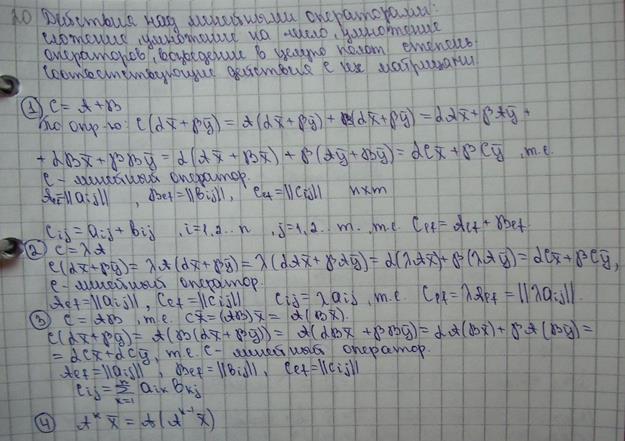 20 Действия над линейными операторами:
сложение, умножение на число, умножение
операторов, возведение в целую полож степень.
Соответствующие действия с их матрицами
① C = A + B
По опр-ю: C(αx̄ + βȳ) = A(αx̄ + βȳ) + B(αx̄ + βȳ) = αAx̄ + βAȳ +
+ αBx̄ + βBȳ = α(Ax̄ + Bx̄) + β(Aȳ + Bȳ) = αCx̄ + βCȳ, т.е.
C - линейный оператор.
A_ef = ||a_ij||, B_ef = ||b_ij||, C_ef = ||c_ij|| n×m
c_ij = a_ij + b_ij, i = 1,2..n, j = 1,2.. m, т.е. C_ef = A_ef + B_ef
② C = λA
C(αx̄ + βȳ) = λA(αx̄ + βȳ) = λ(αAx̄ + βAȳ) = α(λAx̄) + β(λAȳ) = αCx̄ + βCȳ,
C - линейный оператор.
A_ef = ||a_ij||, C_ef = ||c_ij|| c_ij = λa_ij, т.е. C_ef = λA_ef = ||λa_ij||.
③ C = AB, т.е. Cx̄ = (AB)x̄ = A(Bx̄).
C(αx̄ + βȳ) = A(B(αx̄ + βȳ)) = A(αBx̄ + βBȳ) = αA(Bx̄) + βA(Bȳ) =
= αCx̄ + αCȳ, т.е. C - линейный оператор.
A_ef = ||a_ij||, B_ef = ||b_ij||, C_ef = ||c_ij||
c_ij = Σ a_ik b_kj
④ Aᵏx̄ = A(Aᵏ⁻¹x̄)